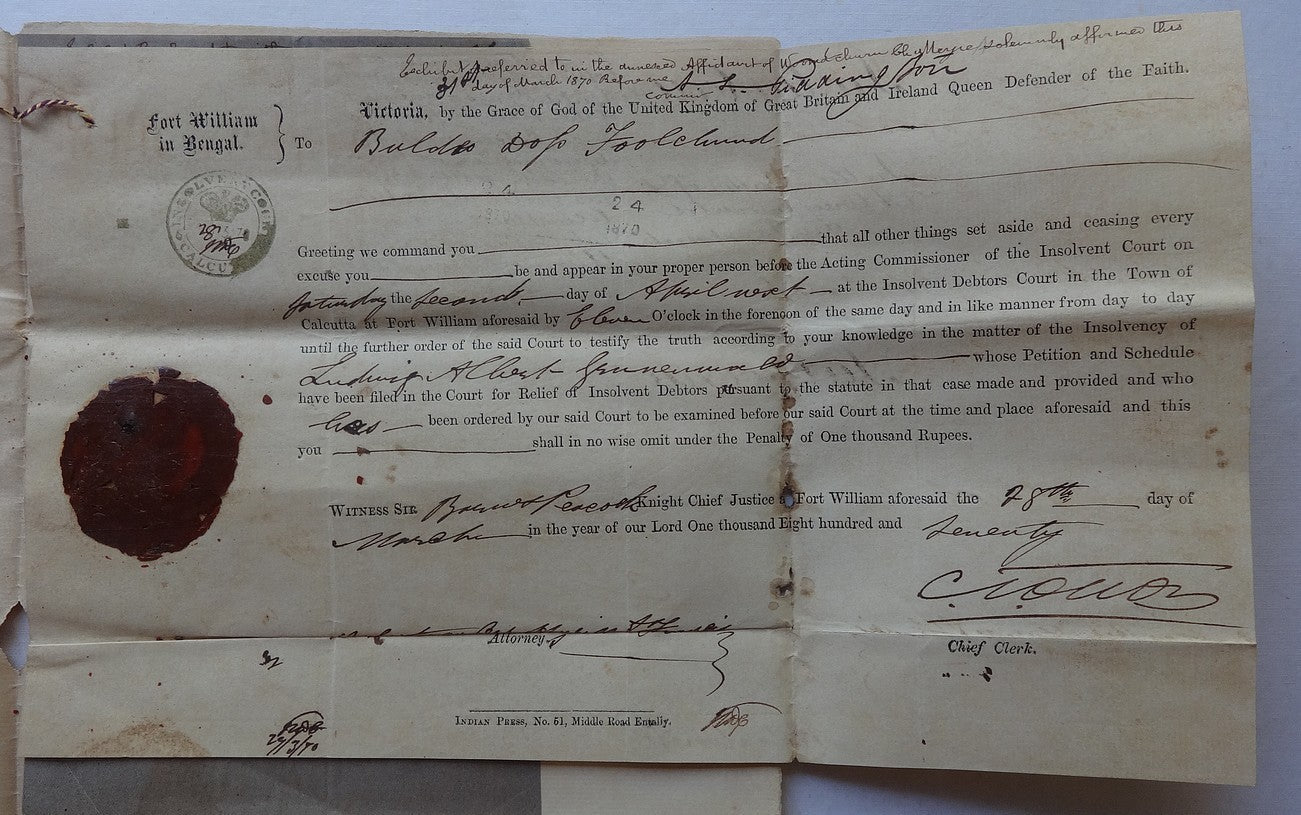 Exhibit referred to in the annexed Affidavit of solemnly affirmed this
31st day of March 1870 Before me
Victoria, by the Grace of God of the United Kingdom of Great Britain and Ireland Queen Defender of the Faith.
Fort William
in Bengal.
To
Buldeo Doss Foolchund
INSOLVENT COURT
CALCUTTA
24
1870
Greeting we command you that all other things set aside and ceasing every
excuse you be and appear in your proper person before the Acting Commissioner of the Insolvent Court on
Saturday the second day of April next at the Insolvent Debtors Court in the Town of
Calcutta at Fort William aforesaid by Eleven O'clock in the forenoon of the same day and in like manner from day to day
until the further order of the said Court to testify the truth according to your knowledge in the matter of the Insolvency of
Ludwig Albert Grunenwald whose Petition and Schedule
have been filed in the Court for Relief of Insolvent Debtors pursuant to the statute in that case made and provided and who
has been ordered by our said Court to be examined before our said Court at the time and place aforesaid and this
you shall in no wise omit under the Penalty of One thousand Rupees.
Witness Sir Barnes Peacock Knight Chief Justice at Fort William aforesaid the 28th day of
March in the year of our Lord One thousand Eight hundred and seventy
Attorney
Chief Clerk.
Indian Press, No. 51, Middle Road Entally.
29/3/70